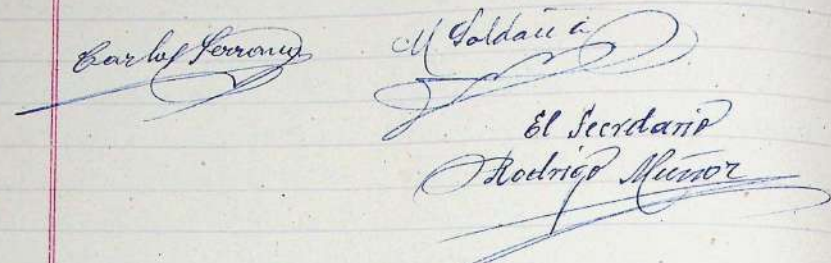 Carlos Serrano
M Saldaña
El Secretario
Rodrigo Muñoz